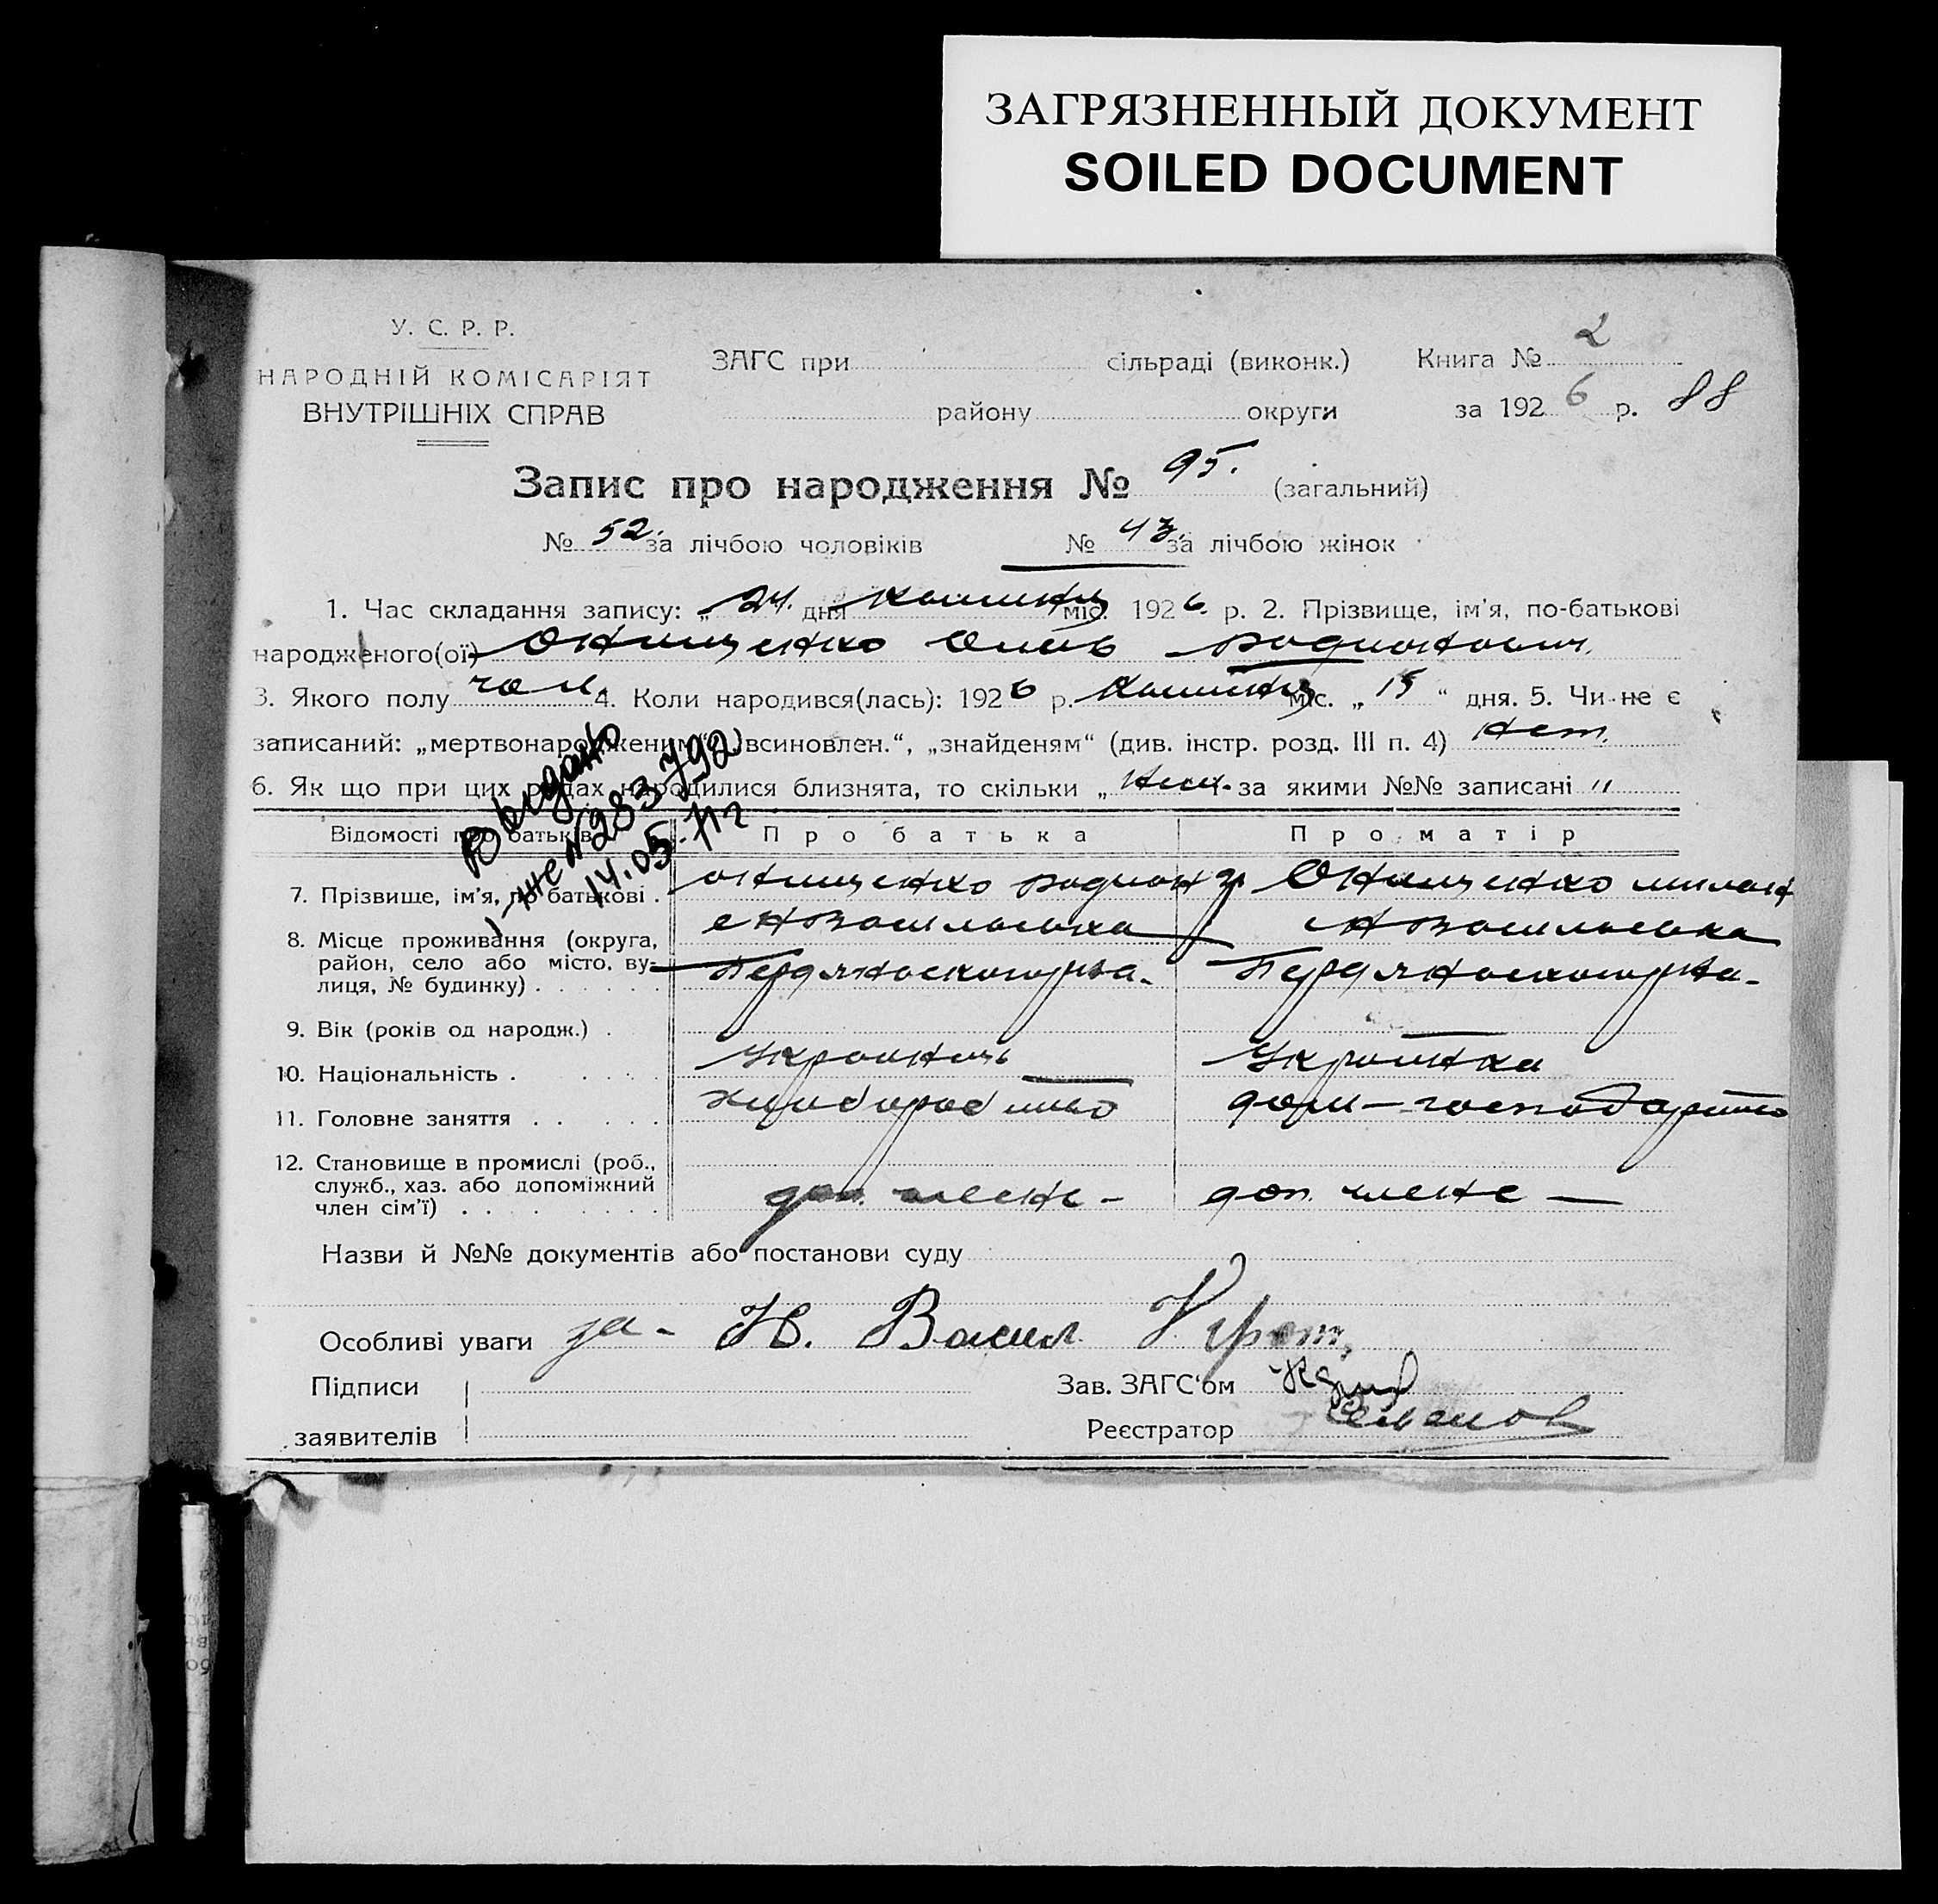 ЗАГРЯЗНЕННЫЙ ДОКУМЕНТ
SOILED DOCUMENT
У. С. Р. Р.
НАРОДНІЙ КОМІСАРІЯТ
ВНУТРІШНІХ СПРАВ
ЗАГС при сільраді (виконк.) Книга № 2
району округи за 1926 р. 88
Запис про народження № 95. (загальний)
№ 52. за лічбою чоловіків № 43. за лічбою жінок
1. Час складання запису: „ 24. дня міс. 1926. р. 2. Прізвище, ім'я, по-батькові
народженого(ої) Онищенко
3. Якого полу чол. 4. Коли народився(лась): 1926 р. міс. „ 15 “ дня. 5. Чи не є
записаний: „мертвонародженим“, „всиновлен.“, „знайденям“ (див. інстр. розд. III п. 4) нет.
6. Як що при цих родах народилися близнята, то скільки „ за якими №№ записані "
Видано
283792
14.05.71г
Відомості про батьків Про батька Про матір
7. Прізвище, ім'я, по батькові . онищенко родион Онищенко
8. Місце проживання (округа,
район, село або місто, ву-
лиця, № будинку) . . . . . .
9. Вік (років од народж.) .
10. Національність . . . . . українець українка
11. Головне заняття . . . . . хлиборобство
12. Становище в промислі (роб.,
служб., хаз. або допоміжний
член сім'ї) . . . . . . . доп. члене - доп. члене —
Назви й №№ документів або постанови суду
Особливі уваги за - Н. Васил
Підписи Зав. ЗАГС'ом
заявителів Реєстратор